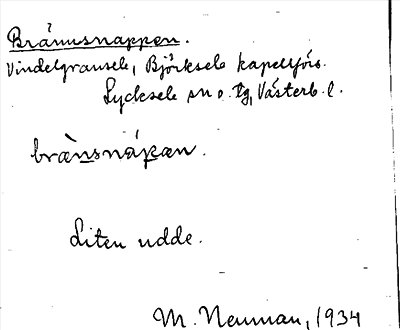 Brännsnappen.
Vindelgransele, Björksele kapellförs.
Lycksele sn o. tg, Västerb. l.
brànsnápan.
Liten udde.
M. Neuman, 1934